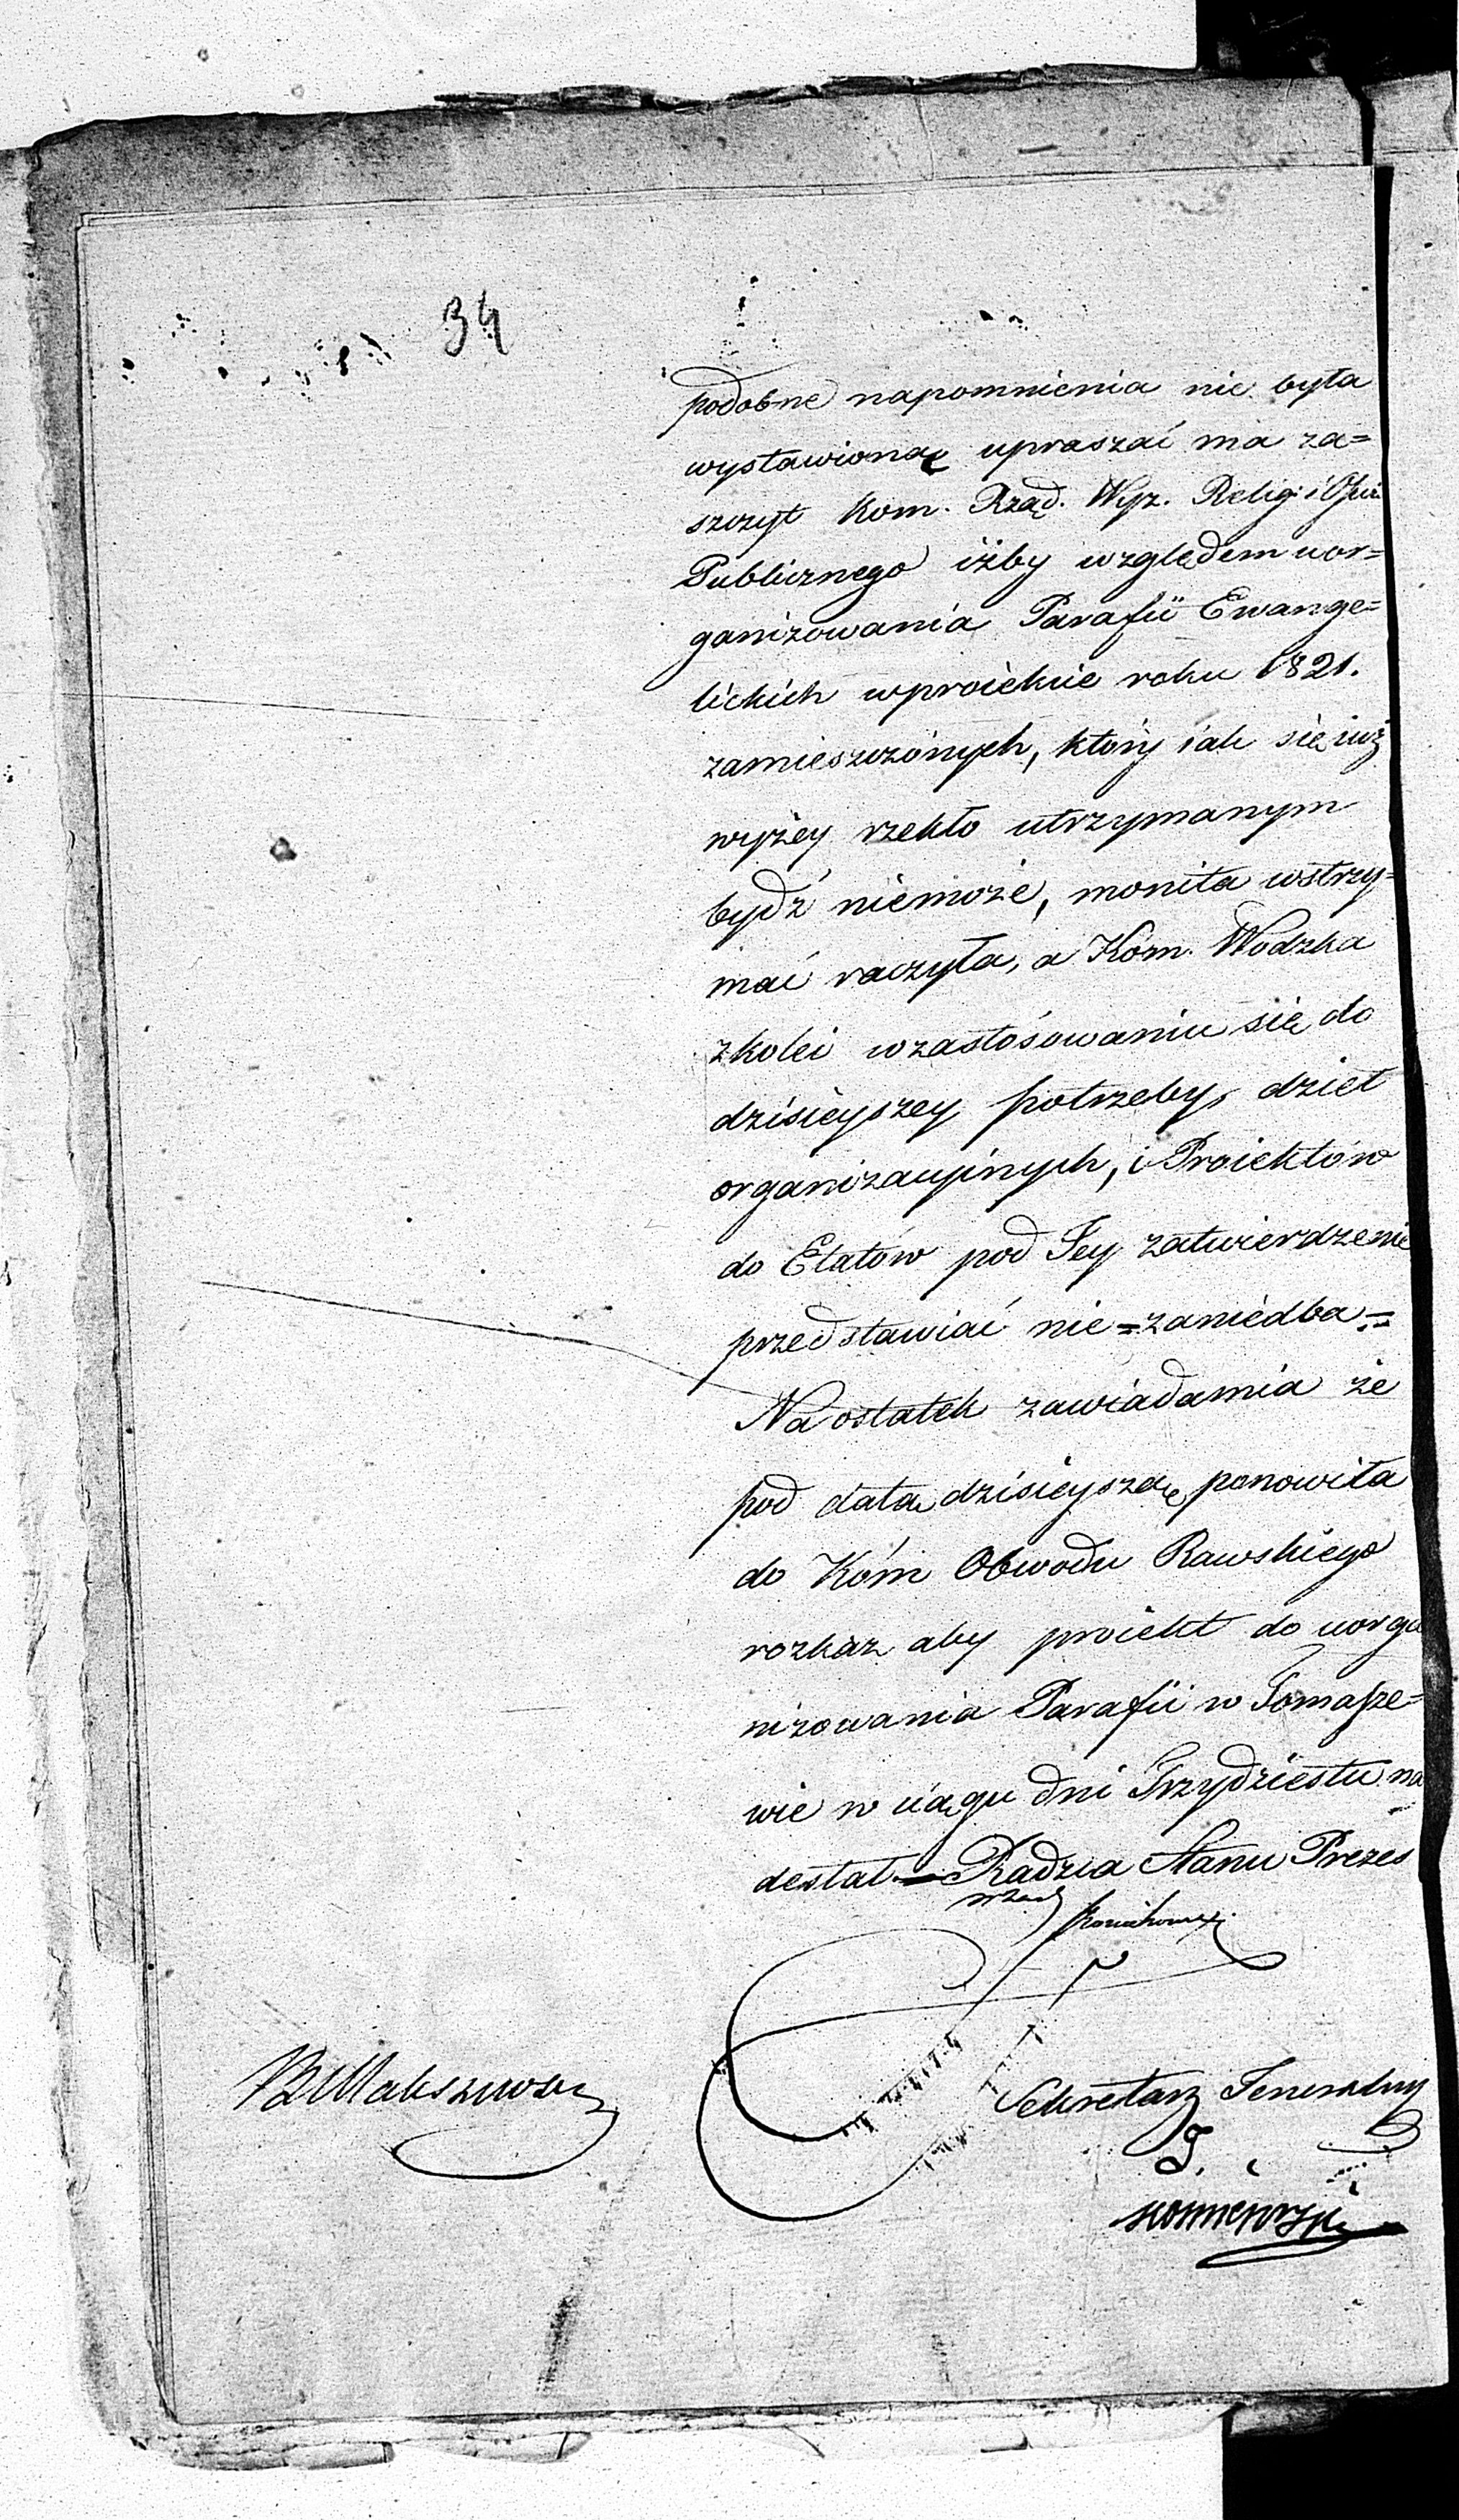 34
podobne napomnienia nie była
wystawioną upraszać ma za=
szczyt Kom. Rząd. Wyz. Relig: i Ośw:
Publicznego iżby względem uor=
ganizowania Parafii Ewange=
lickich w proiekcie roku 1821.
zamieszczonych, który iak się iuż
wyżey rzekło utrzymanym
bydź niemoże, monita wstrzy=
mać raczyła, a Kom. Wodzka
zkolei wzastósowaniu się do
dzisieyszey potrzeby, dzieł
organizacyinych, i Proiektów
do Etatów pod Jey zatwierdzenie
przedstawiać nie=zaniedba=
Na ostatek zawiadamia że
pod datą dzisieyszą ponowiła
do Kóm Obwodu Rawskiego
rozkaz aby proiekt do uorga
nizowania Parafii w Tomasze=
wie w ciągu dni Trzydziestu na
desłał — Radzca Stanu Prezes
Sekretarz Jeneralny